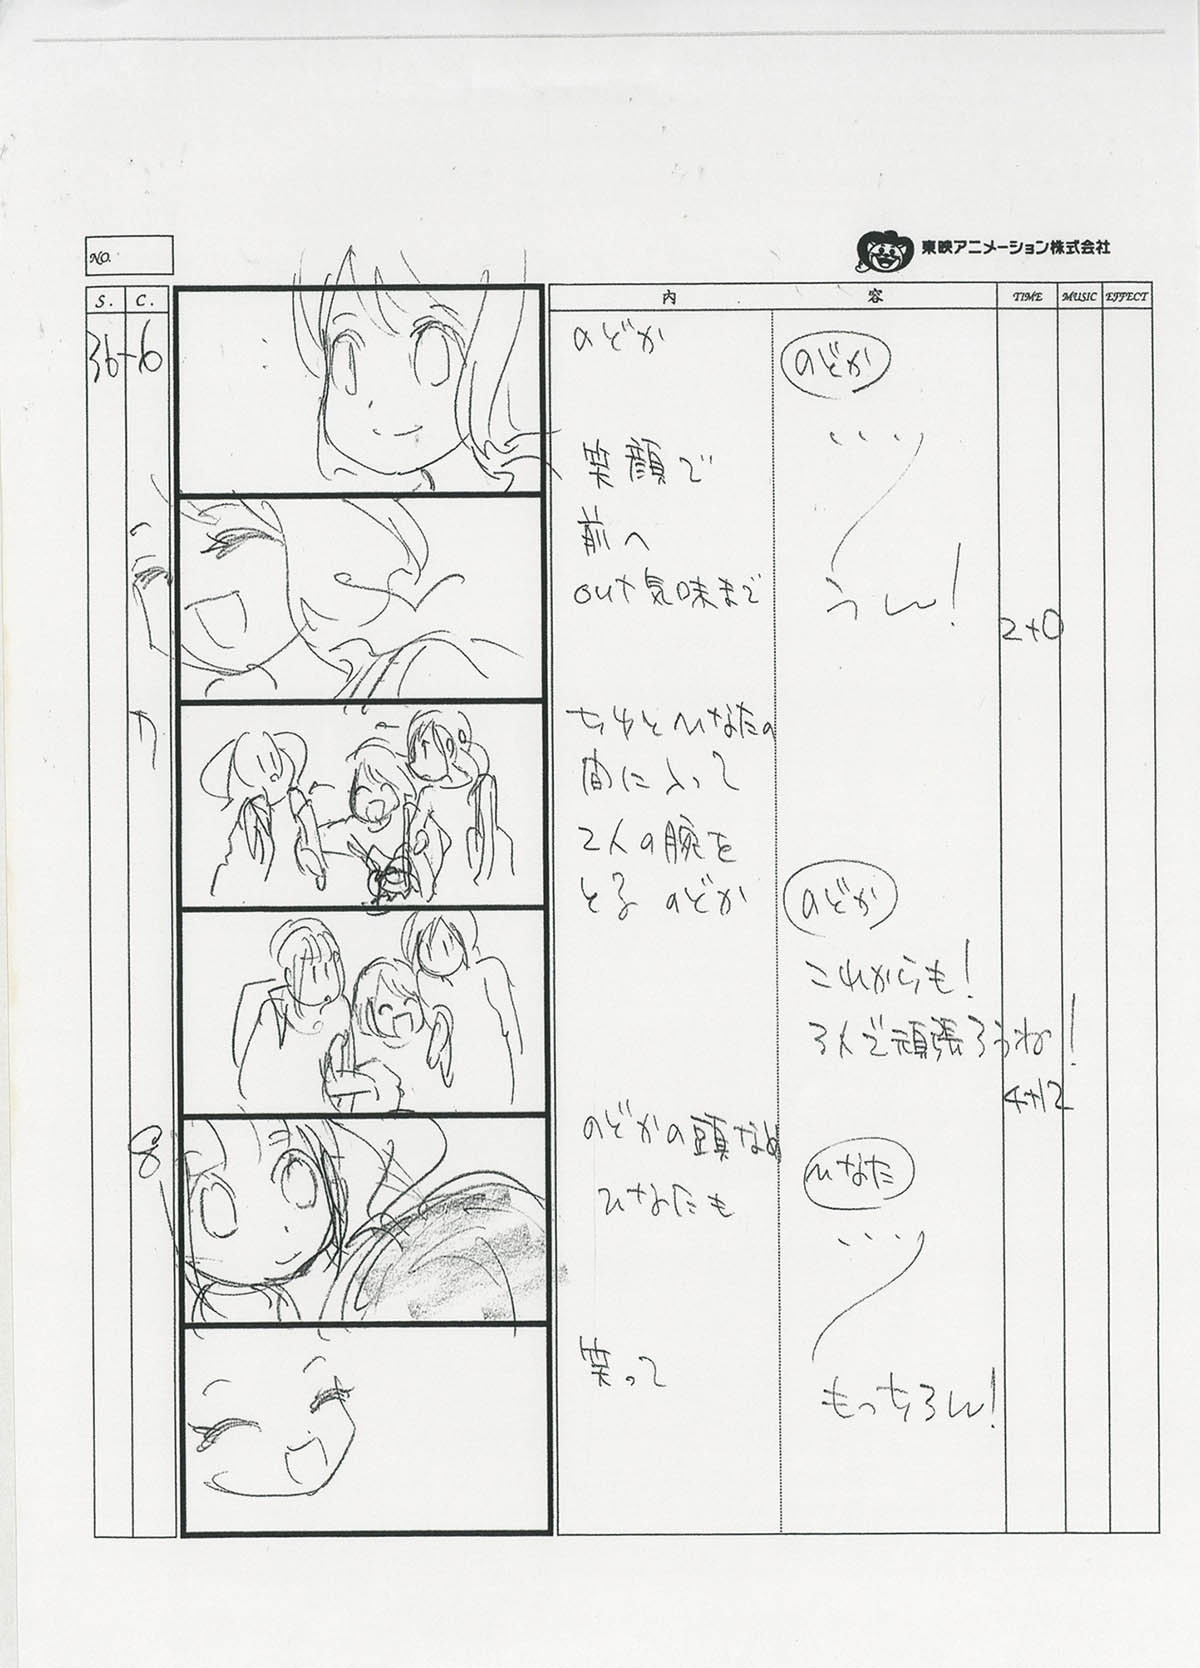 東映アニメーション株式会社
NO.
S. C. 内容 TIME MUSIC EFFECT
36-6
のどか
のどか
・・・・
笑顔で
前へ
out気味まで
うん!
2+0
7
ちゆとひなたの
間に入って
2人の腕を
とる のどか
のどか
これからも!
3人で頑張ろうね!
4+12
8
のどかの頭なめ
ひなたも
ひなた
・・・・
笑って
もっちろん!